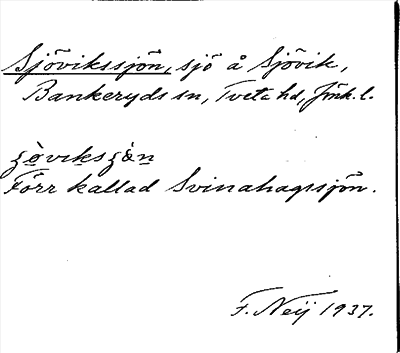 Sjövikssjön, sjö å Sjövik,
Bankeryds sn, Tveta hd, Jönk. l.
ʒöviksʒö̀n
Förr kallad Svinahagssjön.
F. Neij 1937.